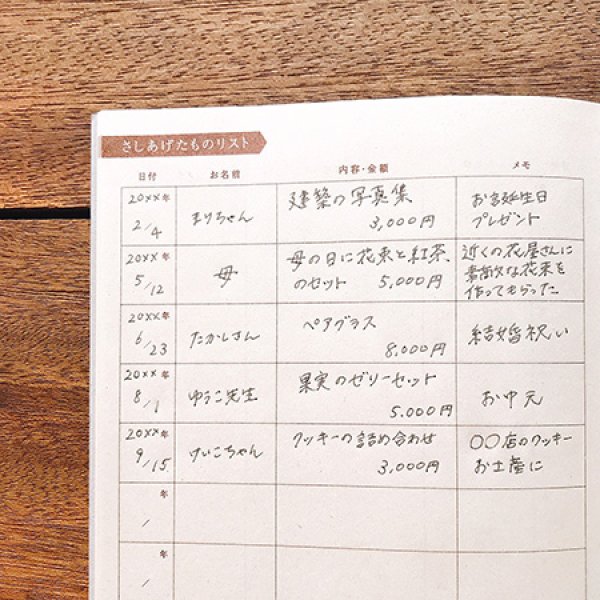 さしあげたものリスト
日付 お名前 内容・金額 メモ
20××年 建築の写真集 お誕生日
2/4 まりちゃん 3,000円 プレゼント
20××年 母の日に花束と紅茶 近くの花屋さんに
5/12 母 のセット 5,000円 素敵な花束を
作ってもらった。
20××年 ペアグラス
6/23 たかしさん 8,000円 結婚祝い
20××年 果実のゼリーセット
8/1 ゆうこ先生 5,000円 お中元
20××年 クッキーの詰め合わせ 〇〇店のクッキー
9/15 けいこちゃん 3,000円 お土産に
年
/
年
/